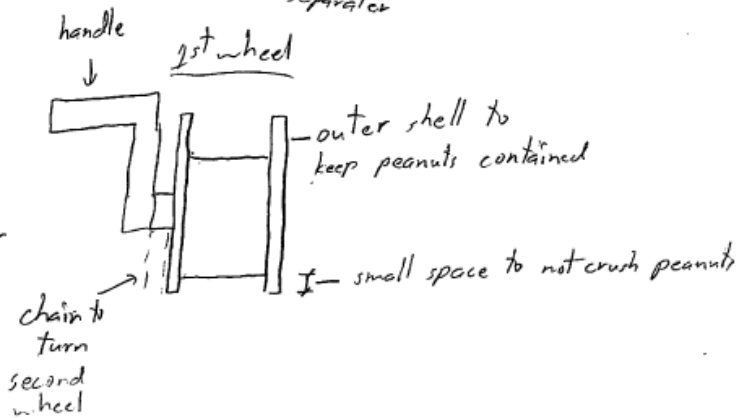 separater
handle
1st wheel
outer shell to
keep peanuts contained
small space to not crush peanuts
chain to
turn
second
wheel